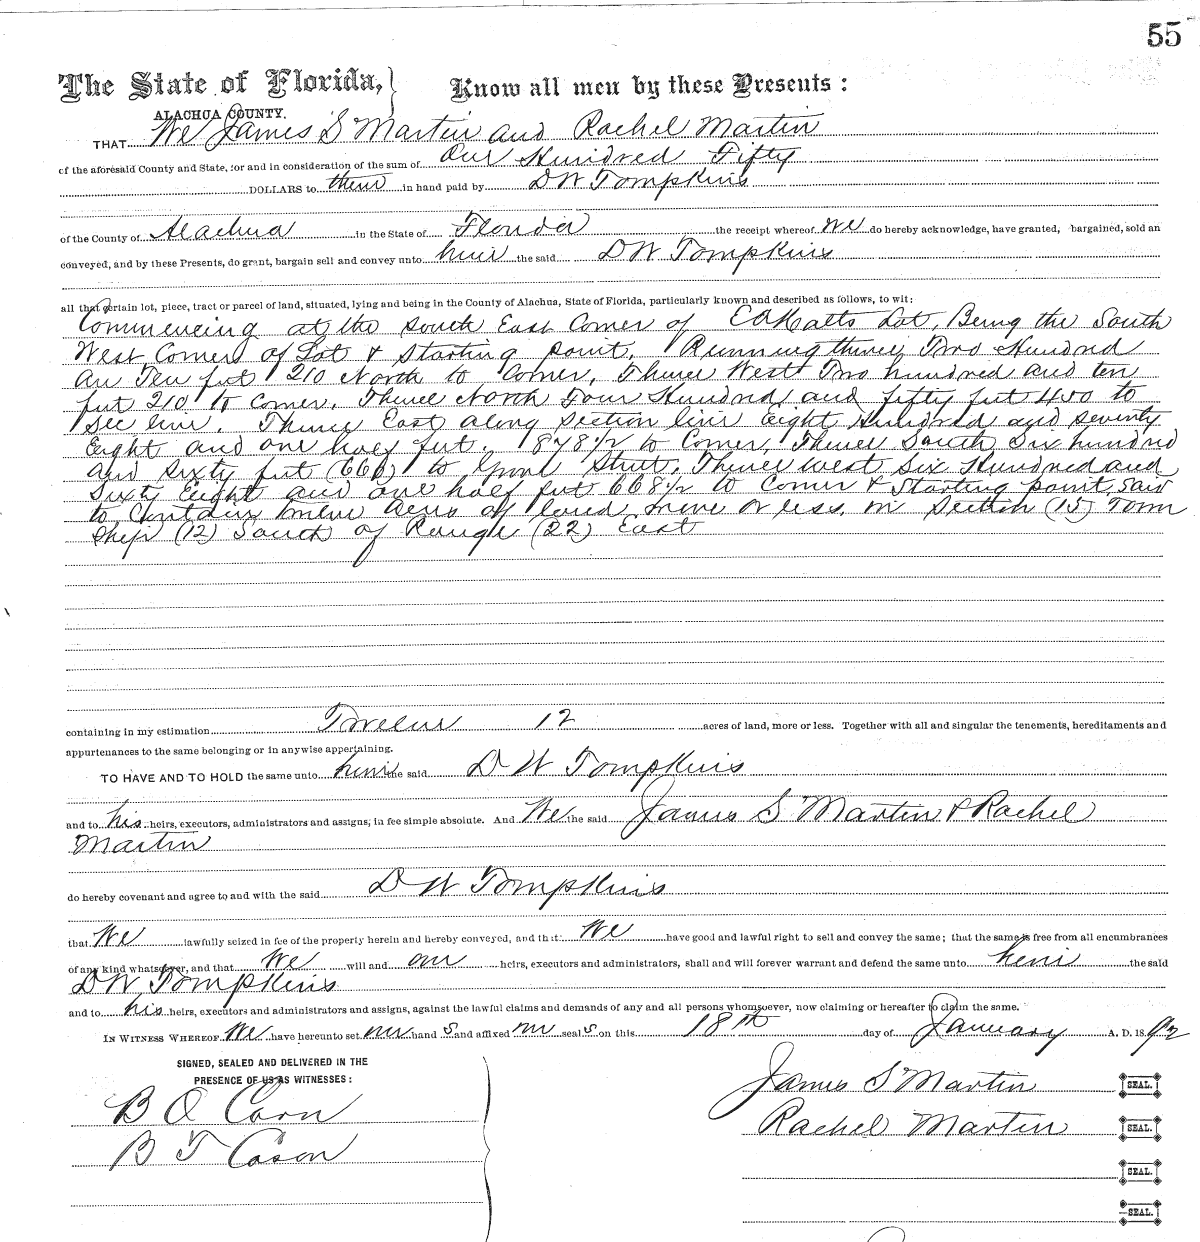 55
The State of Florida,} Know all men by these Presents:
ALACHUA COUNTY.
THAT We James S Martin and Rachel Martin
of the aforesaid County and State, for and in consideration of the sum of One Hundred Fifty
DOLLARS to them in hand paid by D W Tompkins
of the County of Alachua in the State of Florida the receipt whereof we do hereby acknowledge, have granted, bargained, sold an
conveyed, and by these Presents, do grant, bargain sell and convey unto him the said D W Tompkins
all that certain lot, piece, tract or parcel of land, situated, lying and being in the County of Alachua, State of Florida, particularly known and described as follows, to wit:
Commencing at the South East Corner of Lot, Being the South
West Corner of Lot & Starting point. Running thence Two Hundred
an Ten feet 210 North to Corner, Thence West Two hundred and ten
feet 210 to Corner. Thence North Four Hundred and fifty feet 450 to
Sec line. Thence East along Section line Eight Hundred and seventy
Eight and one half feet. 878 1/2 to Corner, Thence South Six hundred
and sixty feet (660) to Street. Thence west Six Hundred and
Sixty Eight and one half feet 668 1/2 to Corner & Starting point. Said
to Contain twelve acres of land more or less. in Section (15) Town
Ship (12) South of Range (22) East
containing in my estimation Twelve 12 acres of land, more or less. Together with all and singular the tenements, hereditaments and
appurtenances to the same belonging or in anywise appertaining.
TO HAVE AND TO HOLD the same unto him the said D W Tompkins
and to his heirs, executors, administrators and assigns, in fee simple absolute. And We the said James S Martin & Rachel
Martin
do hereby covenant and agree to and with the said D W Tompkins
that We lawfully seized in fee of the property herein and hereby conveyed, and that We have good and lawful right to sell and convey the same; that the same is free from all encumbrances
of any kind whatsoever, and that We will and our heirs, executors and administrators, shall and will forever warrant and defend the same unto him the said
D W Tompkins
and to his heirs, executors and administrators and assigns, against the lawful claims and demands of any and all persons whomsoever, now claiming or hereafter to claim the same.
IN WITNESS WHEREOF We have hereunto set our hand s and affixed our seal s on this 18th day of January A. D. 18 92
SIGNED, SEALED AND DELIVERED IN THE
PRESENCE OF US AS WITNESSES:
James S Martin SEAL.
B O
Rachel Martin SEAL.
B T Cason
SEAL.
SEAL.